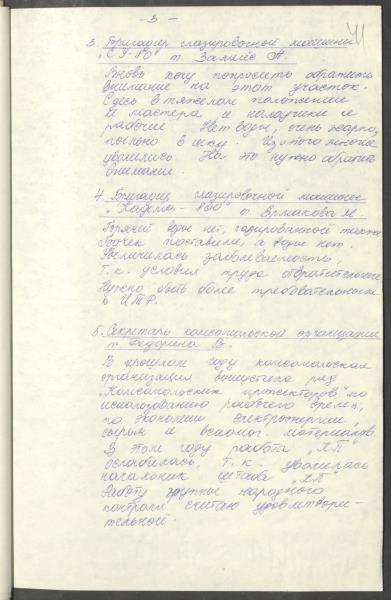 - 3 -
41
3. Бригадир глазировочной машины
"СУ-80" т. Залите А.
Вновь хочу попросить обратить
внимание на этот участок.
Здесь в тяжелом положении
и мастера и наладчики и
рабочие. Нет воды, очень жарко,
пыльно в цеху. Из-за того многие
уволились. На это нужно обратить
внимание.
4. Бригадир глазировочной машины
"Кафель- 80" т. Ермакова И.
Горячей воды нет, газированной тоже
бочек поставили, а воды нет.
Увеличилась заболеваемость,
т.к. условия труда отвратительные
Нужно быть более требовательным
к ИТР.
5. Секретарь комсомольской организации
т. Федорина В.
В прошлом году комсомольская
организация выпустила ряд
"Комсомольских прожекторов" по
использованию рабочего времен,
по экономии электроэнергии,
сырья и вспомог. материалов.
В этом году работа "КП"
ослабилась, т.к. уволилась
начальник штаба "КП"
Работу группы народного
контроля считаю удовлетвори-
тельной.